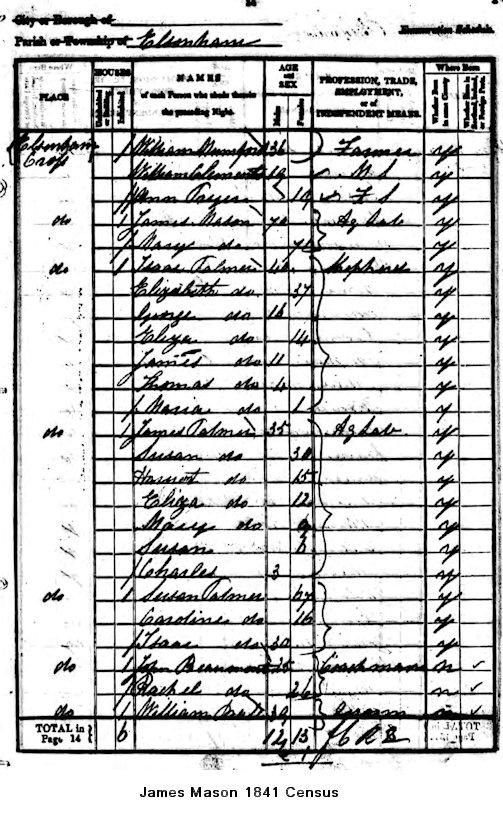 City or Borough of
Parish or Township of Elsenham
Enumeration Schedule.
PLACE
HOUSES
Uninhabited or Building
Inhabited
NAMES
of each Person who abode therein the preceding Night.
AGE and SEX
Males
Females
PROFESSION, TRADE, EMPLOYMENT, or of INDEPENDENT MEANS.
Where Born
Whether Born in same County
Whether Born in Scotland, Ireland, or Foreign Parts.
Elsenham Cross 1 William Mumford 36 Farmer y
William Clements M S y
Ann 19 F S y
do 1 James Mason 70 Ag Lab y
Mary do y
do 1 Isaac Palmer 40 Shepherd y
Elizabeth do 37 y
George do y
Eliza do 14 y
James do 11 y
Thomas do 4 y
Maria do 1 y
do 1 James Palmer 35 Ag Lab y
Susan do 30 y
Harriot do 15 y
Eliza do 12 y
Mary do y
Susan 6 y
Charles 3 y
do 1 Susan Palmer 67 y
Caroline do y
Isaac do 30 y
do 1 John Beaumont Coachman n
Rachel do 26 n
do 1 William Groom n
TOTAL in Page 14 6 12 13
James Mason 1841 Census